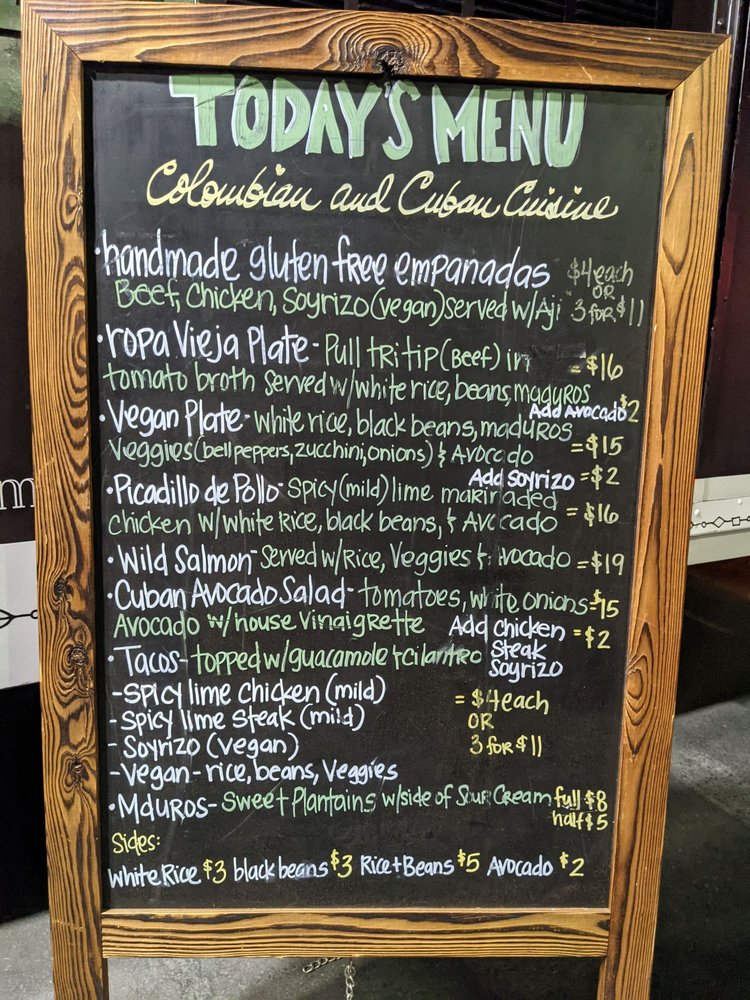 TODAY'S MENU
Colombian and Cuban Cuisine
•handmade gluten free empanadas $4 each
OR
Beef, Chicken, Soyrizo (vegan) served w/Aji 3 for $11
•ropa Vieja Plate - Pull TRI TIP (Beef) in = $16
tomato broth served w/white rice, beans, maduros
Add Avocado $2
•Vegan Plate - white rice, black beans, maduros
Veggies (bell peppers, zucchini, onions) & Avocado = $15
Add Soyrizo = $2
•Picadillo de Pollo - Spicy (mild) lime marinaded
chicken w/white Rice, black beans, & Avocado = $16
•Wild Salmon - Served w/Rice, Veggies & Avocado = $19
•Cuban Avocado Salad - tomatoes, white onions = $15
Avocado w/house Vinaigrette Add chicken = $2
steak
soyrizo
•Tacos - topped w/guacamole & cilantro
- Spicy lime chicken (mild) = $4 each
- Spicy lime steak (mild) OR
- Soyrizo (vegan) 3 for $11
- Vegan - rice, beans, Veggies
•Mduros - Sweet Plantains w/side of Sour Cream full $8
half $5
Sides:
White Rice $3 black beans $3 Rice + Beans $5 Avocado $2